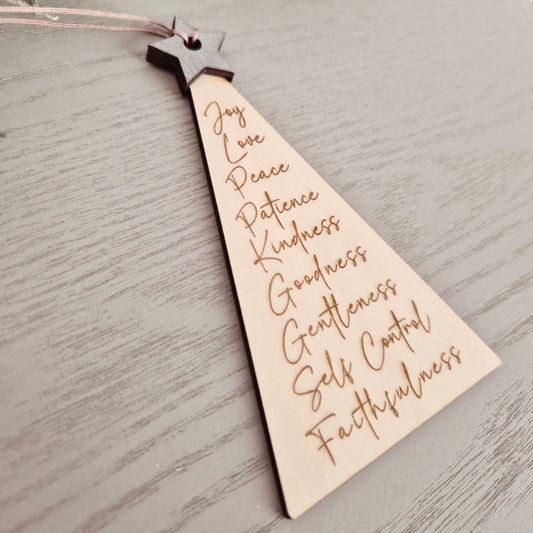 Joy
Love
Peace
Patience
Kindness
Goodness
Gentleness
Self Control
Faithfulness